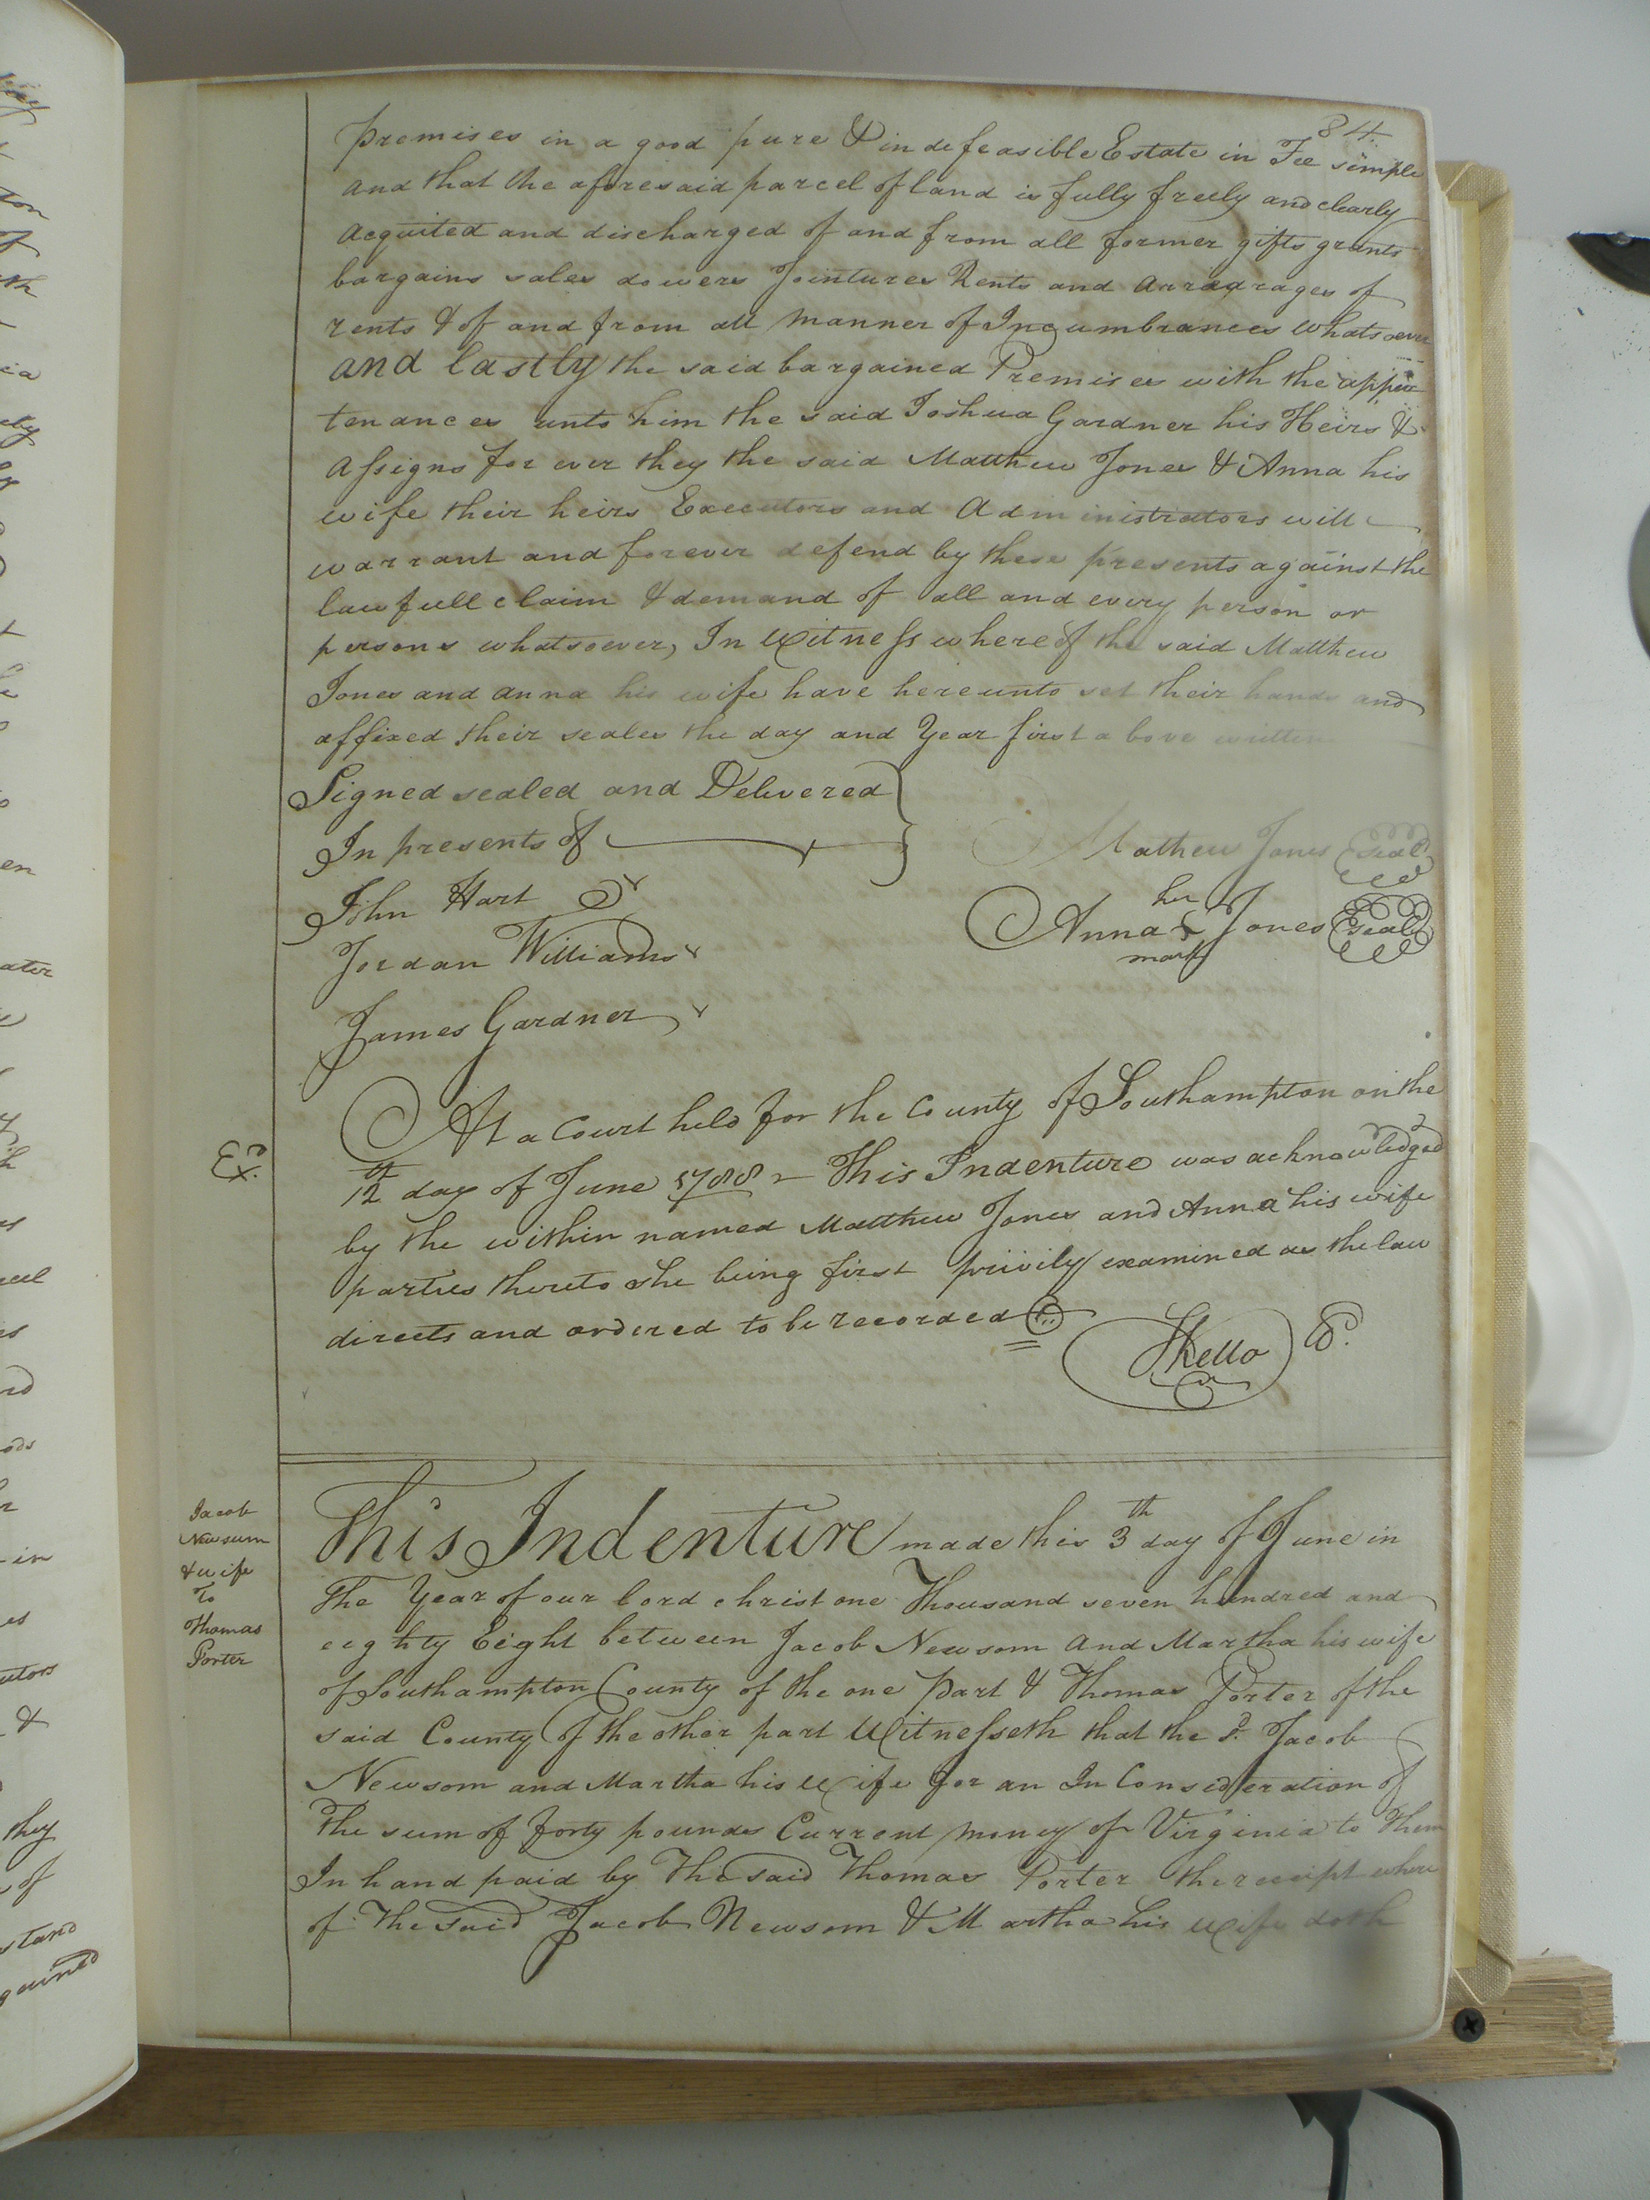 84
premises in a good pure & indefeasible Estate in Fee simple
and that the aforesaid parcel of land is fully freely and clearly
acquited and discharged of and from all former gifts grants
bargains sales dowers Jointures Rents and arrearages of
rents & of and from all manner of Incumbrances whatsoever
and lastly the said bargained Premises with the appur
tenances unto him the said Joshua Gardner his Heirs &
Assigns for ever they the said Matthew Jones & Anna his
wife their heirs Executors and Administrators will
warrant and forever defend by these presents against the
lawfull claim & demand of all and every person or
persons whatsoever, In Witness whereof the said Matthew
Jones and anna his wife have hereunto set their hands and
affixed their seales the day and Year first above written
Signed sealed and Delivered
In presents of
Mathew Jones Seal
John Hart
her
Anna Jones Seal
mark
Jordan Williams
James Gardner
At a Court held for the County of Southampton on the
Ex.
12th day of June 1788 This Indenture was acknowledged
by the within named Matthew Jones and Anna his wife
parties thereto she being first privily examined as the law
directs and ordered to be recorded
SKello
Jacob
Newsum
& wife
To
Thomas
Porter
This Indenture made this 3th day of June in
The Year of our lord christ one Thousand seven hundred and
eighty Eight between Jacob Newsom and Martha his wife
of Southampton County of the one part & Thomas Porter of the
said County of the other part Witnesseth that the sd. Jacob
Newsom and Martha his Wife for an In Consideration of
The sum of forty pounds Current money of Virginia to Them
In hand paid by The said Thomas Porter the receipt where
of The said Jacob Newsom & Martha his wife doth